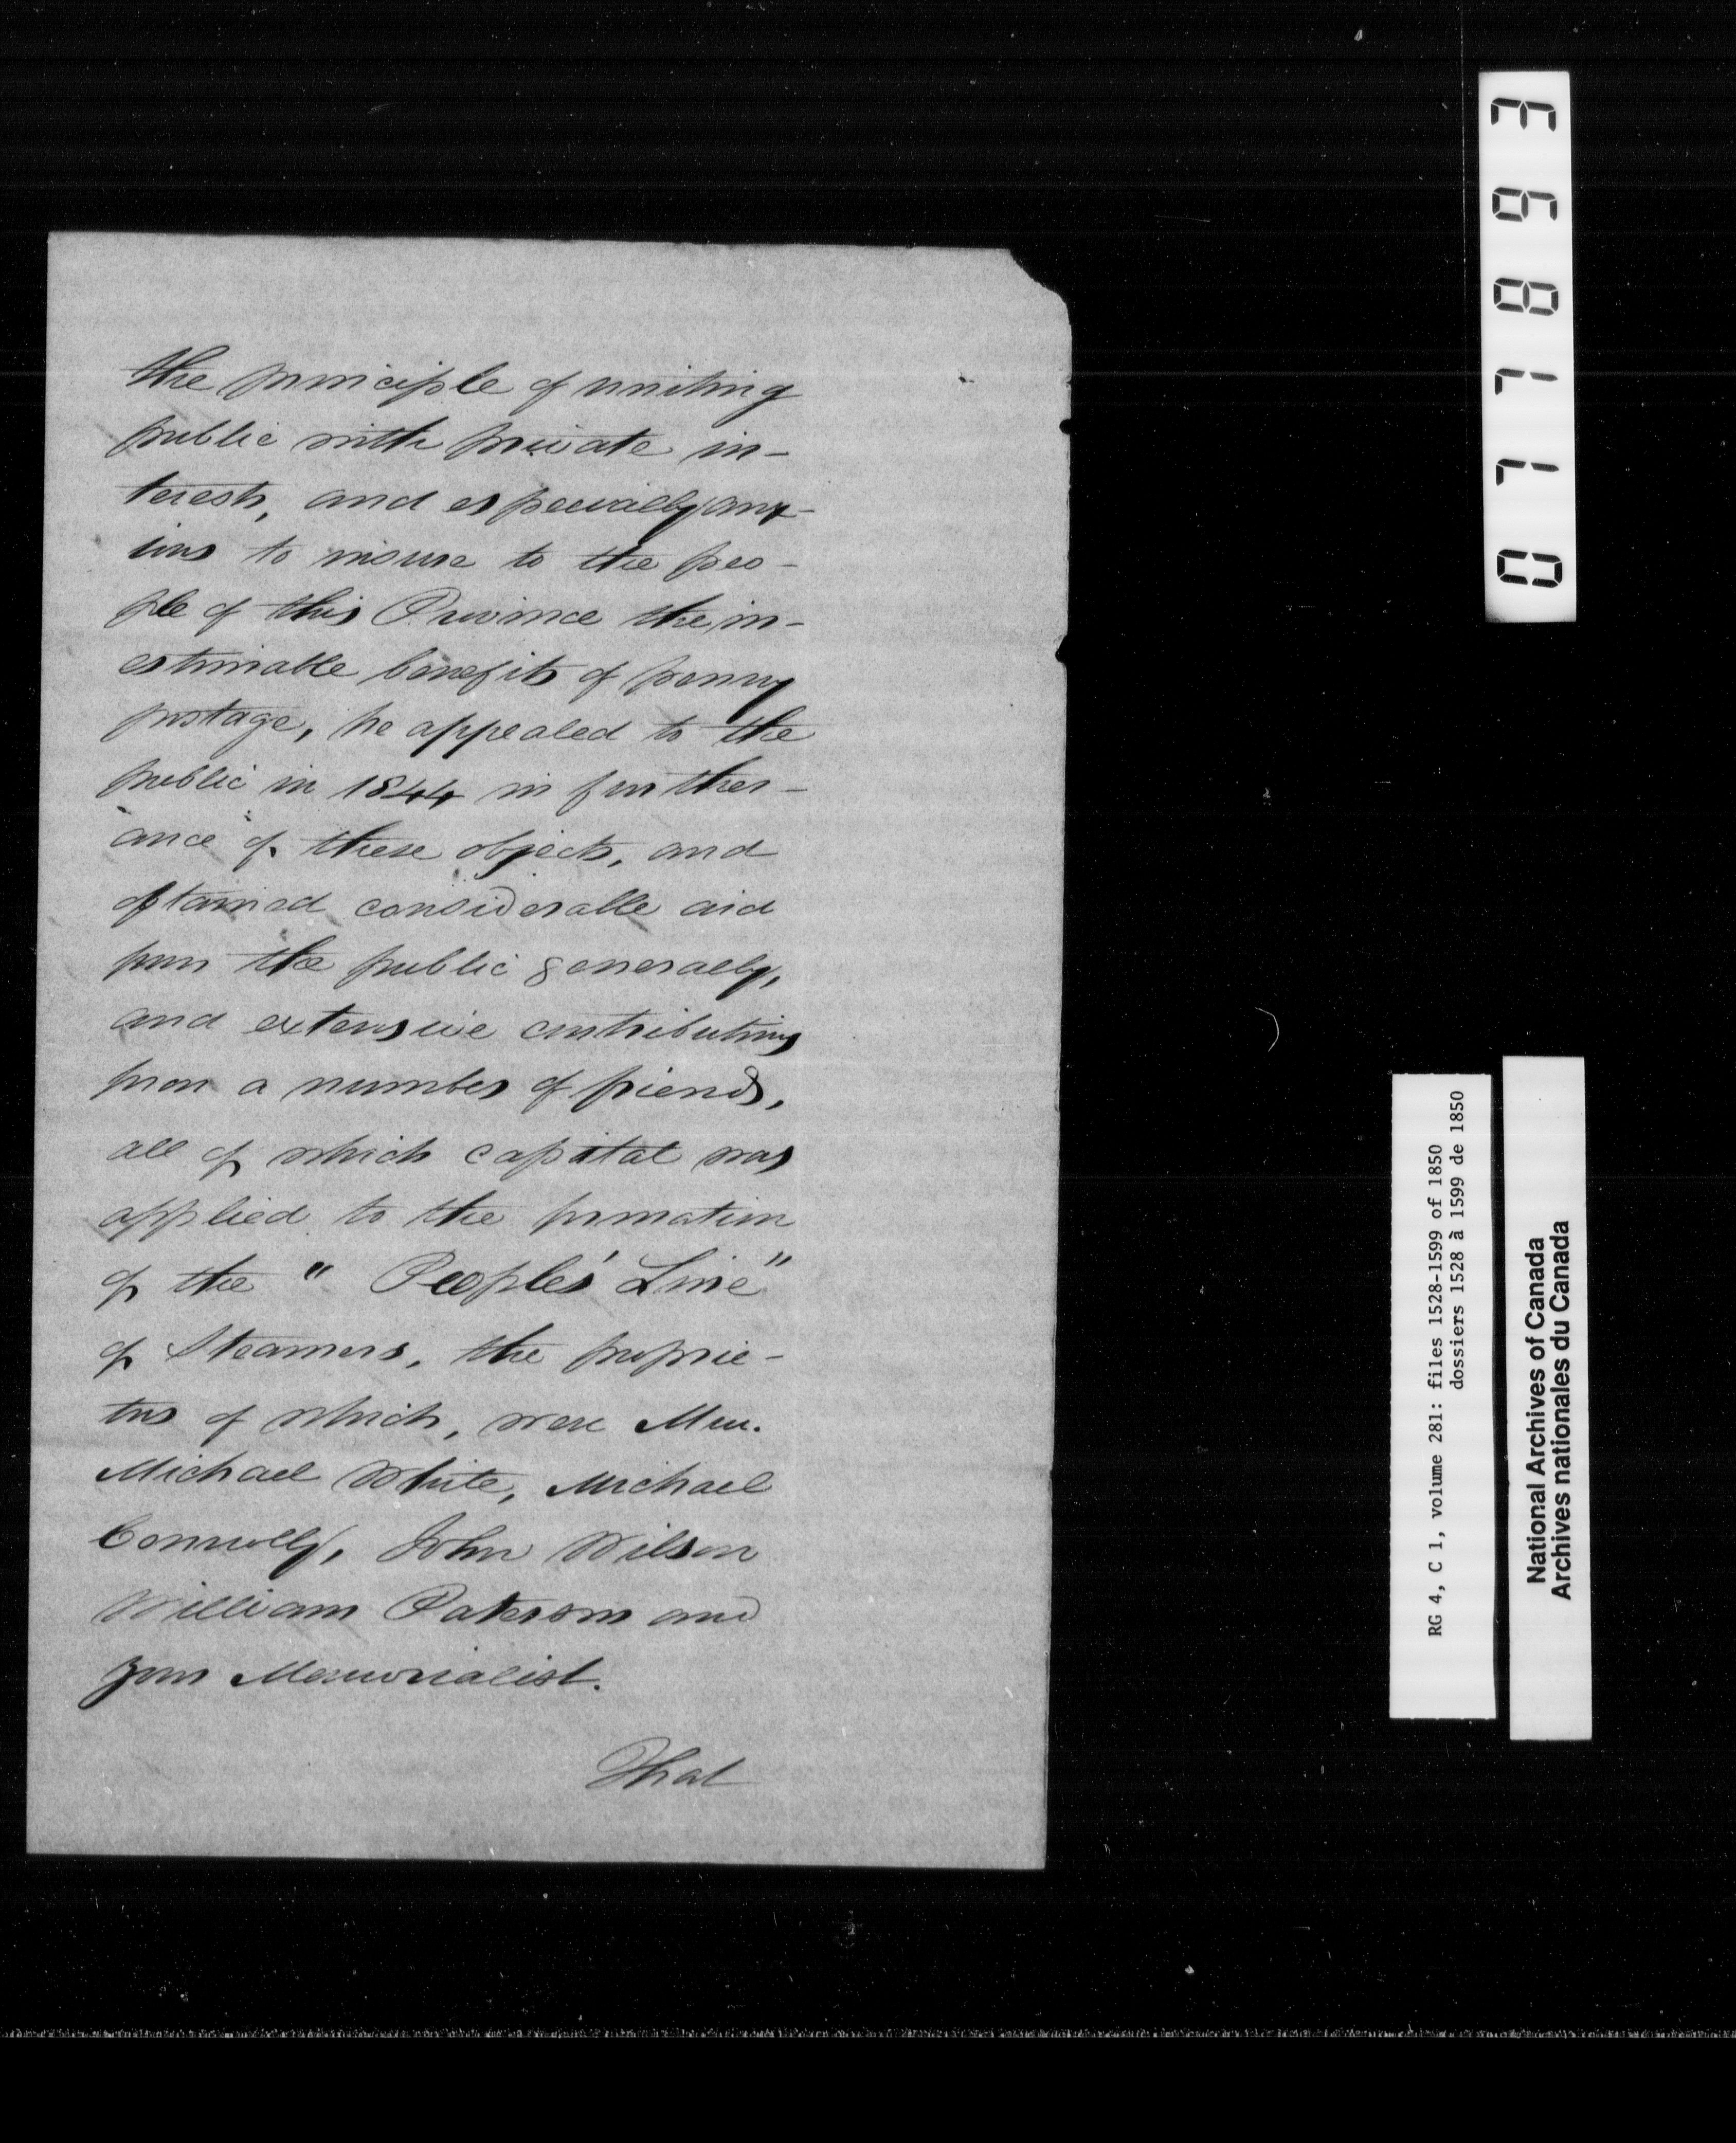 the principle of uniting
public with private in-
terests, and especially anx-
ious to insure to the peo-
ple of this Province the in-
estimable benefits of penny
postage, he appealed to the
public in 1844 in further-
ance of these objects, and
obtained considerable aid
from the public generally,
and extensive contributions
from a number of friends,
all of which capital was
applied to the formation
of the " Peoples' Line"
of Steamers, the proprie-
tors of which, were
Michael White, Michael
Connolly, John Wilson
William Paterson and
your Memorialist.
That
077893
RG 4, C 1, volume 281: files 1528-1599 of 1850
dossiers 1528 à 1599 de 1850
National Archives of Canada
Archives nationales du Canada